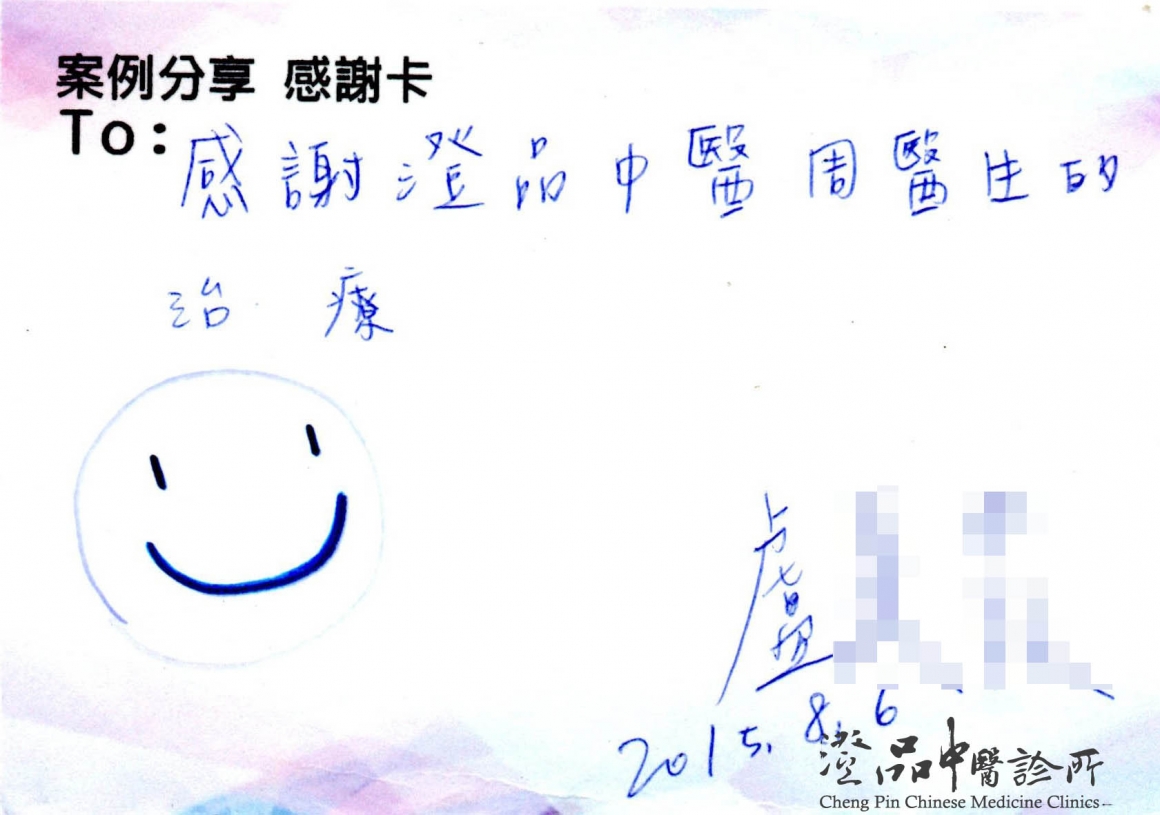 案例分享 感謝卡
To:
感謝澄品中醫周醫生的
治療
盧
2015.8.6
澄品中醫診所
Cheng Pin Chinese Medicine Clinics